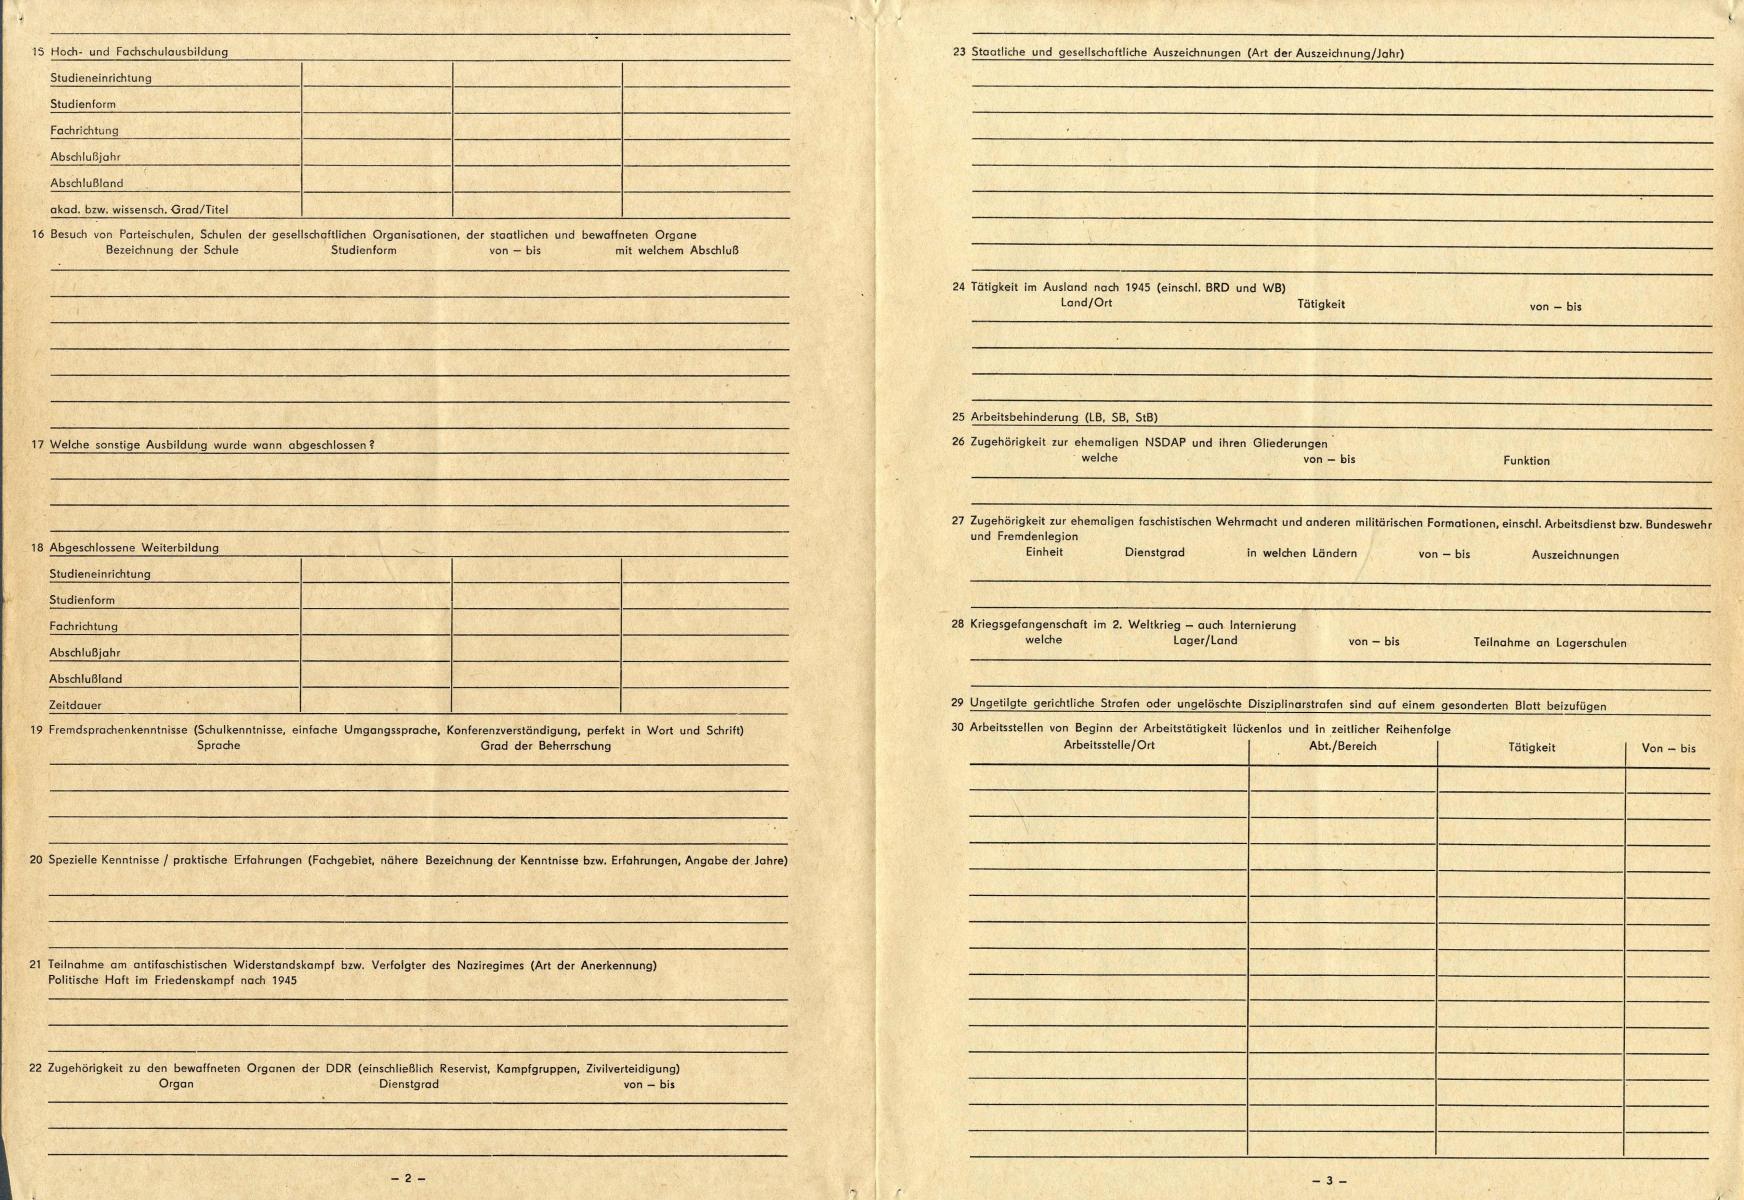 15 Hoch- und Fachschulausbildung
Studieneinrichtung
Studienform
Fachrichtung
Abschlußjahr
Abschlußland
akad. bzw. wissensch. Grad/Titel
16 Besuch von Parteischulen, Schulen der gesellschaftlichen Organisationen, der staatlichen und bewaffneten Organe
Bezeichnung der Schule Studienform von – bis mit welchem Abschluß
17 Welche sonstige Ausbildung wurde wann abgeschlossen?
18 Abgeschlossene Weiterbildung
Studieneinrichtung
Studienform
Fachrichtung
Abschlußjahr
Abschlußland
Zeitdauer
19 Fremdsprachenkenntnisse (Schulkenntnisse, einfache Umgangssprache, Konferenzverständigung, perfekt in Wort und Schrift)
Sprache Grad der Beherrschung
20 Spezielle Kenntnisse / praktische Erfahrungen (Fachgebiet, nähere Bezeichnung der Kenntnisse bzw. Erfahrungen, Angabe der Jahre)
21 Teilnahme am antifaschistischen Widerstandskampf bzw. Verfolgter des Naziregimes (Art der Anerkennung)
Politische Haft im Friedenskampf nach 1945
22 Zugehörigkeit zu den bewaffneten Organen der DDR (einschließlich Reservist, Kampfgruppen, Zivilverteidigung)
Organ Dienstgrad von – bis
– 2 –
23 Staatliche und gesellschaftliche Auszeichnungen (Art der Auszeichnung/Jahr)
24 Tätigkeit im Ausland nach 1945 (einschl. BRD und WB)
Land/Ort Tätigkeit von – bis
25 Arbeitsbehinderung (LB, SB, StB)
26 Zugehörigkeit zur ehemaligen NSDAP und ihren Gliederungen
welche von – bis Funktion
27 Zugehörigkeit zur ehemaligen faschistischen Wehrmacht und anderen militärischen Formationen, einschl. Arbeitsdienst bzw. Bundeswehr
und Fremdenlegion
Einheit Dienstgrad in welchen Ländern von – bis Auszeichnungen
28 Kriegsgefangenschaft im 2. Weltkrieg – auch Internierung
welche Lager/Land von – bis Teilnahme an Lagerschulen
29 Ungetilgte gerichtliche Strafen oder ungelöschte Disziplinarstrafen sind auf einem gesonderten Blatt beizufügen
30 Arbeitsstellen von Beginn der Arbeitstätigkeit lückenlos und in zeitlicher Reihenfolge
Arbeitsstelle/Ort Abt./Bereich Tätigkeit Von – bis
– 3 –